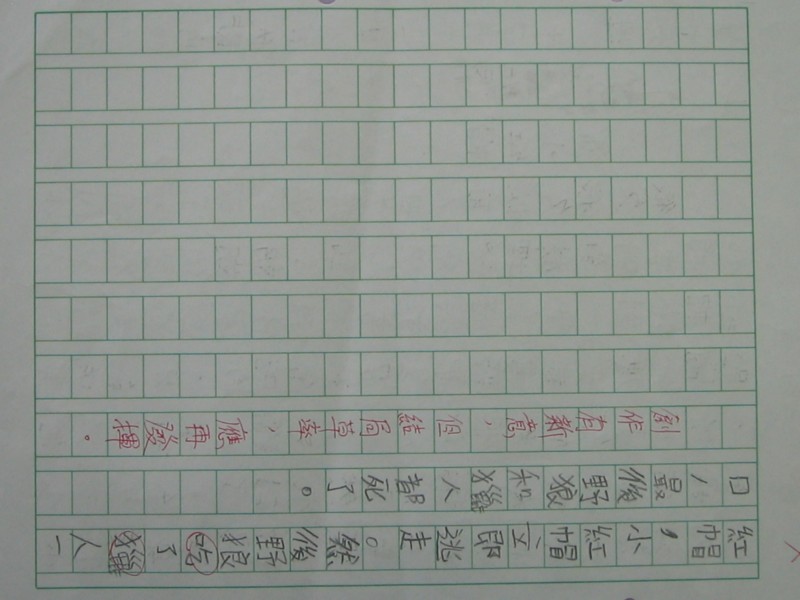 紅帽，小紅帽立即逃走。然後野狼吃了獵人一
口，最後野狼和獵人都死了。
創作有新意，但結局草率，應再發揮。